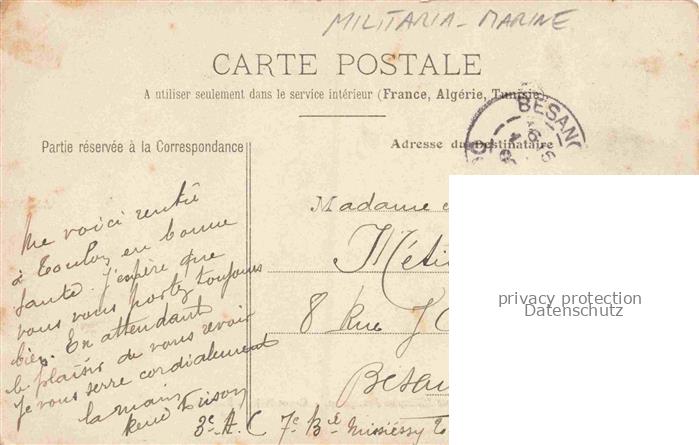 MILITARIA - MARINE
CARTE POSTALE
A utiliser seulement dans le service intérieur (France, Algérie, Tunisie
BESANÇ
Partie réservée à la Correspondance
Adresse du Destinataire
Madame
8 Rue
Besan
Me voici rentré
à Toulon en bonne
santé. J'espère que
vous vous portez toujours
bien. En attendant
le plaisir de vous revoir
je vous serre cordialement
la main
René
3e A.C 7e Bie Missiessy
privacy protection
Datenschutz